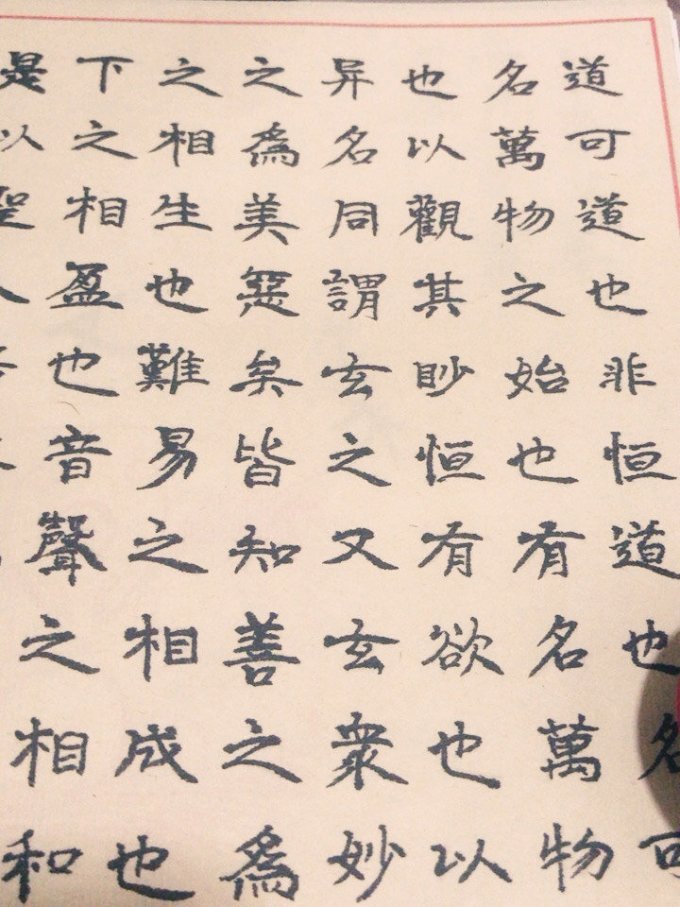 道可道也非恒道也名可
名萬物之始也有名萬物
也以觀其眇恒有欲也以
异名同謂玄之又玄衆妙
之為美惡矣皆知善之為
之相生也難易之相成也
下之相盈也音聲之相和
是以聖人